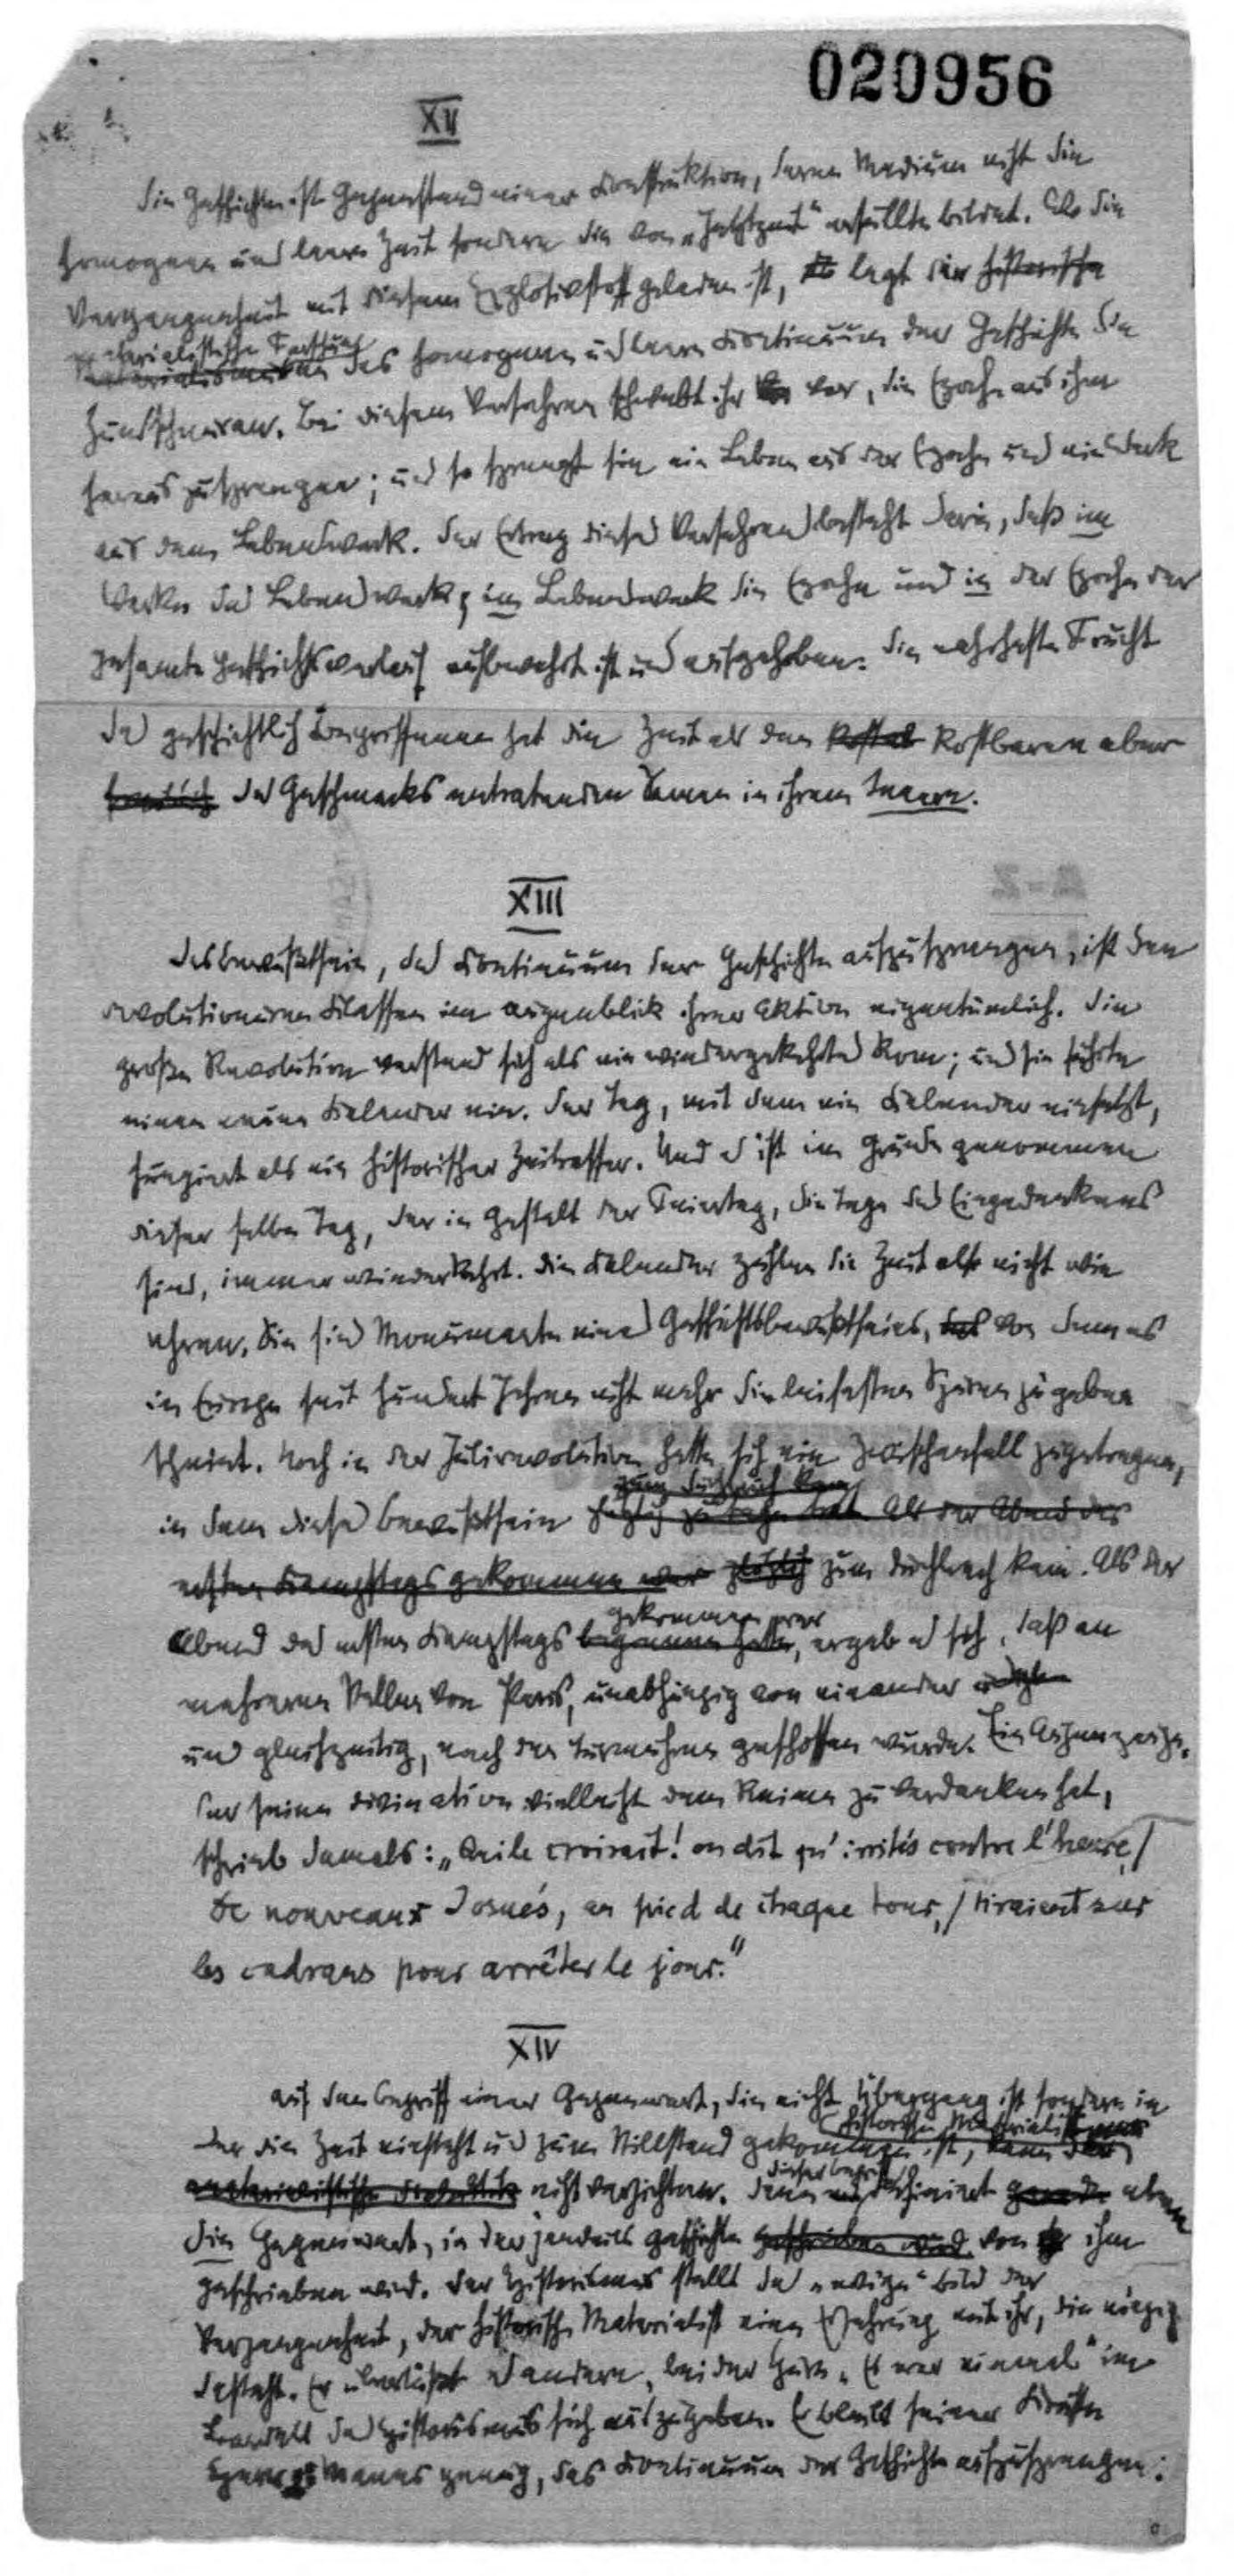 020956
XV
Die Geschichte ist Gegenstand einer Konstruktion, deren Medium nicht die
homogene und leere Zeit sondern die von „Jetztzeit“ erfüllte bildet. Wo die
Vergangenheit mit diesem Explosivstoff geladen ist, legt der historische
materialistische Forschung
des homogenen und leeren Kontinuum der Geschichte die
Zündschnur an. Bei diesem Verfahren schwebt ihr vor, die Epoche aus ihm
herauszusprengen; und so sprengt sie ein Leben aus der Epoche und ein Werk
aus dem Lebenswerk. Der Ertrag dieses Verfahrens besteht darin, daß im
Werke das Lebenswerk, im Lebenswerk die Epoche und in der Epoche der
gesamte Geschichtsverlauf aufbewahrt ist und aufgehoben. Die nahrhafte Frucht
des geschichtlich Begriffenen hat die Zeit als den kostbaren aber
des Geschmacks entratenden Samen in ihrem Innern.
XIII
Das Bewußtsein, das Kontinuum der Geschichte aufzusprengen, ist den
revolutionären Klassen im Augenblick ihrer Aktion eigentümlich. Die
große Revolution verstand sich als ein wiedergekehrtes Rom; und sie führte
einen neuen Kalender ein. Der Tag, mit dem ein Kalender einsetzt,
fungiert als ein historischer Zeitraffer. Und es ist im Grunde genommen
dieser selbe Tag, der in Gestalt der Feiertage, die Tage des Eingedenkens
sind, immer wiederkehrt. Die Kalender zählen die Zeit also nicht wie
Uhren. Sie sind Monumente eines Geschichtsbewußtseins, von dem es
in Europa seit hundert Jahren nicht mehr die leisesten Spuren zu geben
scheint. Noch in der Julirevolution hatte sich ein Zwischenfall zugetragen,
zum Durchbruch kam
in dem dieses Bewußtsein Als der Abend des
ersten Kampftags gekommen war plötzlich zum Durchbruch kam. Als der
gekommen war
Abend des ersten Kampftags begonnen hatte, ergab es sich, daß an
mehreren Stellen von Paris, unabhängig von einander
und gleichzeitig, nach den Turmuhren geschossen wurde. Ein Augenzeuge,
der seine Divination vielleicht dem Reime zu verdanken hat,
schrieb damals: „Qui le croirait! on dit qu'irrités contre l'heure, /
De nouveaux Josués, au pied de chaque tour, / tiraient sur
les cadrans pour arrêter le jour.“
XIV
Auf den Begriff einer Gegenwart, die nicht Übergang ist sondern in
historische Materialist
der die Zeit einsteht und zum Stillstand gekommen ist, kann der
dieser Begriff
materialistische Dialektik nicht verzichten. Denn definiert gerade eben
die Gegenwart, in der jeweils Geschichte geschrieben wird von ihm
geschrieben wird. Der Historismus stellt das „ewige“ Bild der
Vergangenheit, der historische Materialist eine Erfahrung mit ihr, die einzig
dasteht. Er überläßt es andern, bei der Hure „Es war einmal“ im
Bordell des Historismus sich auszugeben. Er bleibt seiner Kräfte
Herr: Manns genug, das Kontinuum der Geschichte aufzusprengen.